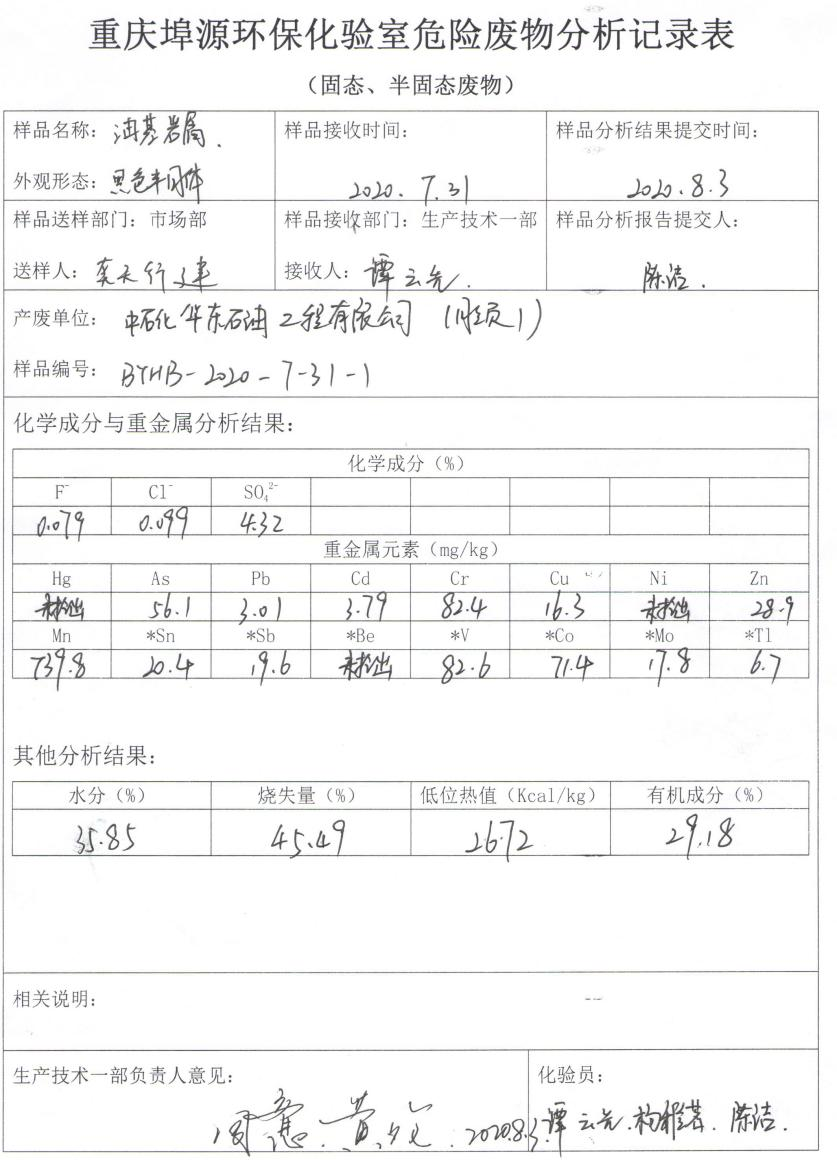 重庆埠源环保化验室危险废物分析记录表
（固态、半固态废物）
样品名称：油基岩屑． 样品接收时间： 样品分析结果提交时间：
外观形态：黑色半固体 2020．7.31 2020.8.3
样品送样部门：市场部 样品接收部门：生产技术一部 样品分析报告提交人：
送样人： 接收人：谭云先． 陈洁．
产废单位：中石化华东石油工程有限公司（胜页1）
样品编号：BYHB-2020-7-31-1
化学成分与重金属分析结果：
化学成分（%）
F⁻ Cl⁻ SO₄²⁻
0.079 0.099 4.32
重金属元素（mg/kg）
Hg As Pb Cd Cr Cu Ni Zn
未检出 56.1 3.01 3.79 82.4 16.3 未检出 28.9
Mn *Sn *Sb *Be *V *Co *Mo *Tl
739.8 20.4 19.6 未检出 82.6 71.4 17.8 6.7
其他分析结果：
水分（%） 烧失量（%） 低位热值（Kcal/kg） 有机成分（%）
35.85 45.49 2672 29.18
相关说明：
生产技术一部负责人意见： 化验员：
同意． 2020.8.3 谭云先． 陈洁．